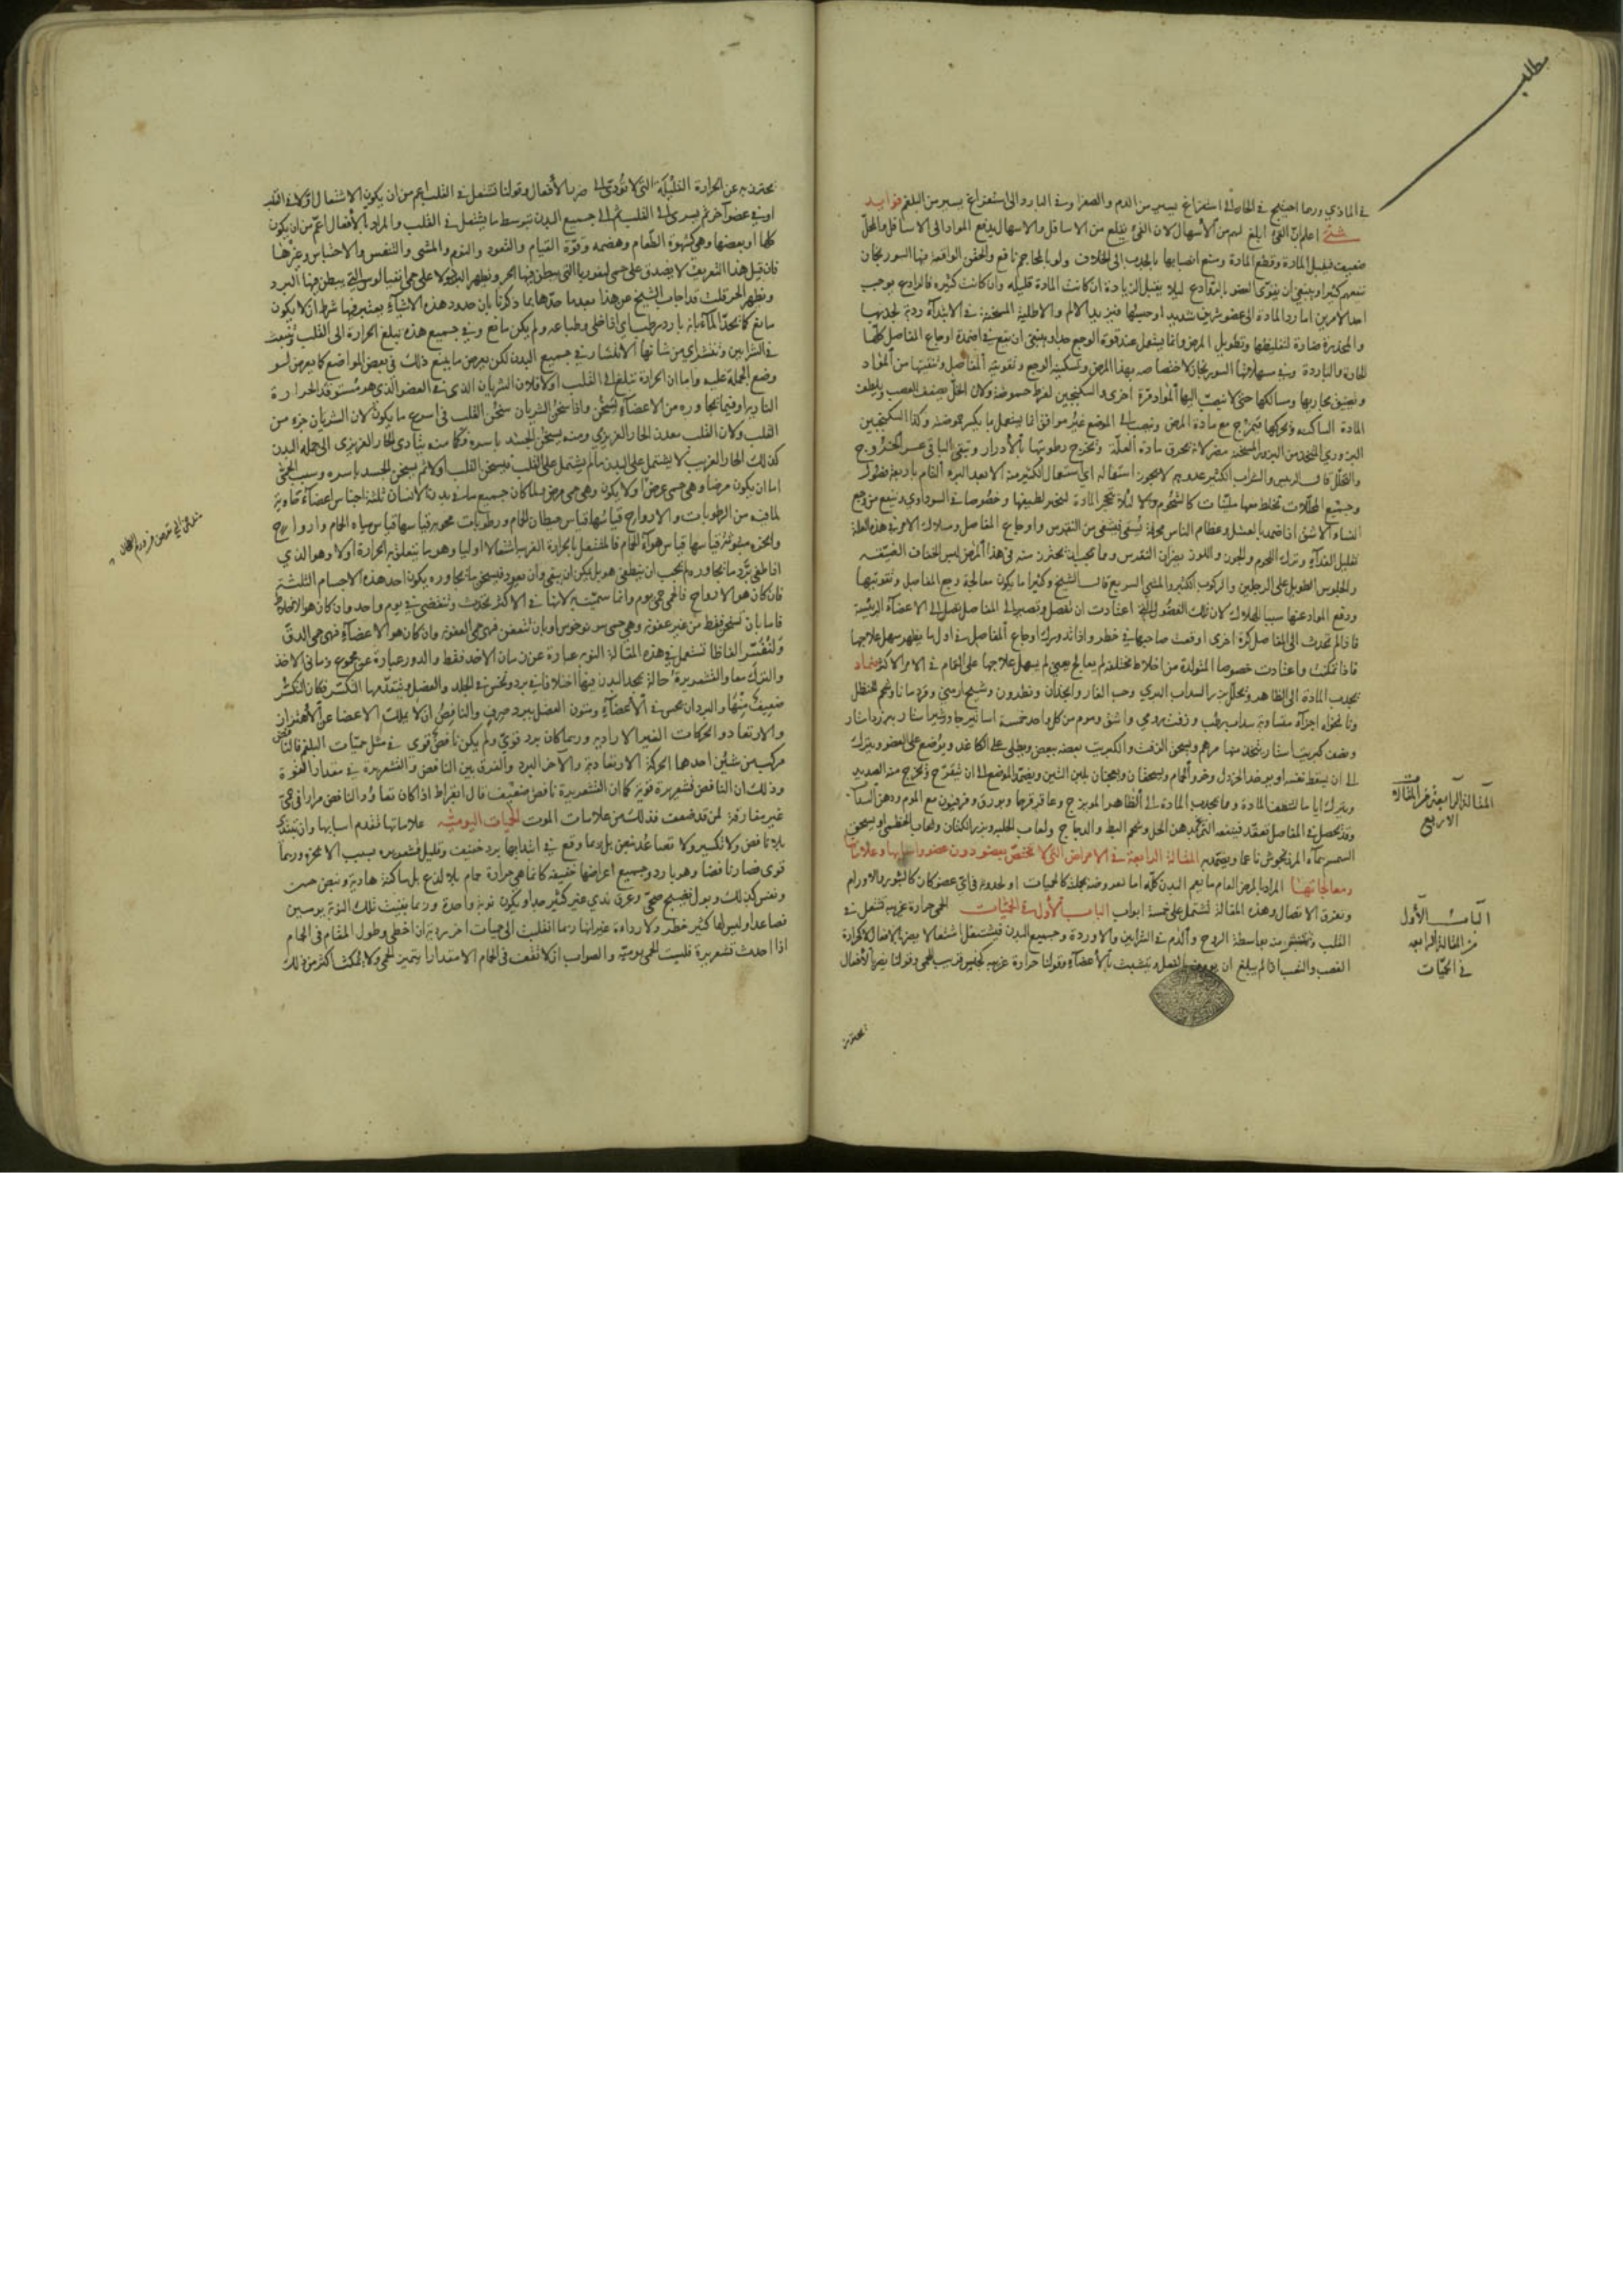 مطلب
في المادي وربما احتيج في الحارة الى استفراغ يسير من الدم والصفرا وفي الباردة الى استفراغ يسير من البلغم فوايد
شتى اعلم ان القيء ابلغ لهم من الاسهال لان القيء يقلع من الاسافل والاسهال يدفع المواد الى الاسافل والمحل
ضعيف فيقبل المادة وقطع المادة ومنع انصبابها بالجذب الى الخلاف ولو بالمحاجم نافع والحقن الواقعة فيها السورنجان
تنفعهم كثيرا وينبغي ان يقوى العضو بالروادع ليلا يقبل الزيادة ان كانت المادة قليلة وان كانت كثيرة فالرادع يوجب
احد الامرين اما رد المادة الى عضو شريف شديد او حبسها فيزيد الالم والاطلية المسخنة في الابتداء ردية لجذبها
والمخدرة ضارة لتغليظها وتطويل المرض وانما يستعمل عند قوة الوجع جدا وينبغي ان يقع في اضمدة اوجاع المفاصل كلها
الحارة والباردة وفي مسهلاتها السورنجان لاختصاصه بهذا المرض وتسكينه الوجع وتقويته المفاصل وتنقيتها من المواد
وتضيق مجاريها ومسالكها حتى لا تنصب اليها المواد مرة اخرى والسكنجبين لفرط حموضته ولان الخل يضعف العصب ويلطف
المادة الساكنة ويحركها فتمزج مع مادة المرض وتنصب الى الموضع غير موافق انما يستعمل ما يكسر حموضته وكذا السكنجبين
البزوري المتخذ من البزور المسخنة مضر لانه يحرق مادة العلة وتخرج رطوبتها بالادرار وتبقى الباقي عسر الخروج
والتحلل قال الرئيس والشراب الكثير عدو لهم لا يجوز استعماله اي استعمال الكثير منه الا بعد البرء التام باربعة فصول
وجميع المحللات تخلط معها ملينات كالشحوم والا لئلا تحجر المادة لتحليل لطيفها وخصوصا في السوداوي وينفع من وجع
النسا والاشق اذا ضمد بالعسل وعظام الناس محرقة تسقى فيشفى من النقرس واوجاع المفاصل وملاك الامر في هذه العلة
تقليل الغذاء وترك اللحوم والجبن واللوز يضران النقرس ومما يجب ان يحترز منه في هذا المرض لبس الخفاف الضيقة
والجلوس الطويل على الرجلين والركوب الكثير والمشي السريع قال الشيخ وكثيرا ما يكون معالجة وجع المفاصل وتقويتها
ودفع المواد عنها سببا للهلاك لان تلك الفضول التي اعتادت ان تفصل وتصير الى المفاصل تميل الى الاعضاء الرئيسة
فاذا لم تحدث الى المفاصل كرة اخرى اوقعت صاحبها في خطر واذا تدورك اوجاع المفاصل في اول ما يظهر سهل علاجها
فاذا تمكنت واعتادت خصوصا المتولدة من اخلاط مختلفة لم يعالج يعني لم يسهل علاجها على التمام في الامر الاكثر ضماد
يجذب المادة الى الظاهر وتحلل بزر السداب البري وحب الغار وانجدان ونطرون وشيح ارمني وقردمانا وشحم الحنظل
الى ان يسقط نفسه او يوخذ الخردل وخرو الحمام ويسحقان ويعجنان بلبن التين ويضمد الموضع الى ان يتقرح ويخرج منه الصديد
ويترك اياما لتلطف المادة ومما يجذب المادة الى الظاهر الميويزج وعاقرقرحا وبورق وفرفيون مع الموم ودهن السداب
وقد يحصل في المفاصل تعقد فينفعه التمريخ بدهن الخل وشحم البط والدجاج ولعاب الحلبة وبزر الكتان ولعاب الخطمي او يسحق
السمسم بماء المرزنجوش ناعما ويضمد به المقالة الرابعة في الامراض التي لا تختص بعضو دون عضو واسبابها وعلاماتها
ومعالجاتها المراد بالمرض العام ما يعم البدن كله اما لعروضه بجملته كالحميات او لحدوثه في اي عضو كان كالبثور والاورام
وتفرق الاتصال وهذه المقالة تشتمل على خمسة ابواب الباب الاول في الحميات الحمى حرارة غريبة تشتعل في
القلب وتنتشر منه بواسطة الروح والدم في الشرايين والاوردة وجميع البدن فيشتعل اشتعالا يضر بالافعال لا كحرارة
الغضب والتعب اذا لم يبلغ ان يؤوف بالفعل ويتشبث بالاعضاء وقولنا حرارة غريبة كجنس قريب للحمى وقولنا يضر بالافعال
يحترز
المقالة الرابعة من المقالات
الاربع
الباب الاول
من المقالة الرابعة
في الحميات
يحترز به عن الحرارة القليلة التي لا تؤدي الى ضرر بالافعال وقولنا تشتعل في القلب اعم من ان يكون الاشتعال اولا في القلب
او في عضو آخر ثم يسري الى القلب ثم الى جميع البدن بتوسط ما يشتعل في القلب والمراد بالافعال اعم من ان يكون
كلها او بعضها وهي كشهوة الطعام وهضمه وقوة القيام والقعود والنوم والمشي والتنفس والاحتباس وغيرها
فان قيل هذا التعريف لا يصدق على حمى ليفوريا التي يبطن فيها الحر ويظهر البرد ولا على حمى انفيالوس التي يبطن فيها البرد
ويظهر الحر قلت قد اجاب الشيخ عن هذا بعدما حدها بما ذكرنا بان حدود هذه الاشياء يعتبر فيها شرط ان لا يكون
مانع كما يحد الماء بانه بارد رطب اي اذا خلى وطباعه ولم يكن مانع وفي جميع هذه تبلغ الحرارة الى القلب وتنبعث
في الشرايين وتنتشر اي من شانها الانتشار في جميع البدن لكن يعرض ما يمنع ذلك في بعض المواضع كما يعرض لو
وضع الجملد عليه واما ان الحرارة تبلغ الى القلب اولا فلان الشريان الذي في العضو الذي هو مستوقد الحرارة
النارية او فيما يجاوره من الاعضاء يسخن واذا سخن الشريان سخن القلب في اسرع ما يكون لان الشريان جزء من
القلب ولان القلب معدن الحار الغريزي ومنه يسخن الجسد باسره فكما منه يتادى الحار الغريزي الى جملة البدن
كذلك الحار الغريب لا يشتمل على البدن ما لم يشتمل على القلب فيسخن القلب اولا ثم يسخن الجسد باسره وسبب الحمى
اما ان يكون مرضا وهي حمى عرض او لا يكون وهي حمى مرض ولما كان جميع ما في بدن الانسان ثلثة اجناس اعضاء حاوية
لما فيه من الرطوبات والارواح قياسها قياس حيطان الحمام ورطوبات محوية قياسها قياس مياه الحمام وارواح
وابخرة مبثوثة قياسها قياس هواء الحمام فالمشتعل بالحرارة الغريبة اشتعالا اوليا وهو ما يتعلق به الحرارة اولا وهو الذي
اذا طفى برد ما يجاوره ولم يجب ان ينطفى هو بل يمكن ان يبقى وان يعود فيسخن ما يجاوره يكون احد هذه الاجسام الثلثة
فان كان هو الارواح فالحمى حمى يوم وانما سميت به لانها في الاكثر تحدث وتنقضي في يوم واحد وان كان هو الاخلاط
فاما بان تسخن فقط من غير عفونة وهي حمى سونوخوس او بان تتعفن فهي حمى العفونة وان كان هو الاعضاء فهي حمى الدق
ولنفسر الفاظا تستعمل في هذه المقالة النوبة عبارة عن زمان الاخذ فقط والدور عبارة عن مجموع زماني الاخذ
والترك معا والقشعريرة حالة يجد البدن فيها اختلافا في برد ونخس في الجلد والعضل ويتقدمها التكسر فكان التكسر
ضعيف منها والبرد ان يحس في الاعضاء ومتون العضل ببرد صرف والنافض ان لا يملك الاعضا عن الاهتزاز
والارتعاد والحركات الغير الارادية وربما كان برد قوي ولم يكن نافض قوي في مثل حميات البلغم فالنافض
مركب من شيئين احدها الحركة الارتعادية والآخر البرد والفرق بين النافض والقشعريرة في مقدار القوة
وذلك ان النافض قشعريرة قوية كما ان القشعريرة نافض ضعيف قال ابقراط اذا كان تعاود النافض مرارا في حمى
غير مفارقة لمن قد ضعفت فذلك من علامات الموت الحميات اليومية علاماتها تقدم اسبابها وان تبتدئ
بلا نافض ولا تكسير ولا تضاغط نبض بل ربما وقع في ابتدائها برد خفيف وقليل قشعريرة بسبب الابخرة وربما
قوى فصار نافضا وهو نادر وجميع اعراضها خفيفة كانما هي حرارة حمام بلا لذع بل ساكنة هادية ونبض حسن
ونفس كذلك وبول نضيج صحي وعرق ندي غير كثير جدا ويكون نوبة واحدة وربما بقيت تلك النوبة يومين
فصاعدا وليس لها كثير خطر ولا رداءة غير انها ربما انقلبت الى حميات اخر ردية ان اخطى وطول المقام في الحمام
اذا احدث قشعريرة فليست الحمى يومية والصواب ان لا تقف في الحمام الا مقدارا يتميز الحمى ولا يمكث اكثر من ذلك